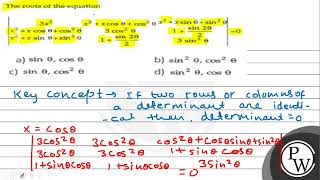 The roots of the equation
| 3x² x² + x cos θ + cos² θ x² + x sin θ + sin² θ |
| x² + x cos θ + cos² θ 3 cos² θ 1 + sin 2θ/2 | = 0
| x² + x sin θ + sin² θ 1 + sin 2θ/2 3 sin² θ |
a) sin θ, cos θ b) sin² θ, cos² θ
c) sin θ, cos² θ d) sin² θ, cos θ
Key Concept → If two rows or columns of
a determinant are identi-
cal then, determinant = 0
x = cosθ
| 3cos²θ 3cos²θ cos²θ + cosθ sinθ + sin²θ |
| 3cos²θ 3cos²θ 1 + sinθ cosθ |
| 1 + sinθ cosθ 1 + sinθ cosθ 3 sin²θ |
= 0
PW